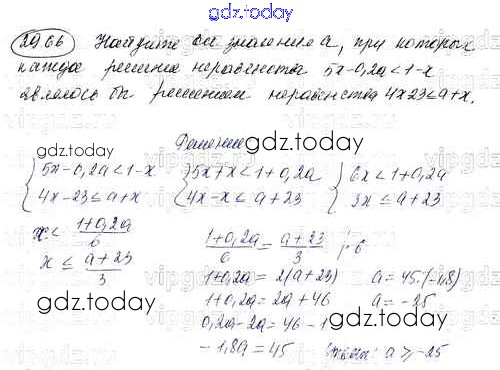 gdz.today
29.66 Найдите все значения a, при которых
каждое решение неравенства 5x-0,2a<1-x
являлось бы решением неравенства 4x-23≤a+x.
Решение
gdz.today
{ 5x-0,2a<1-x { 5x+x<1+0,2a { 6x<1+0,2a
4x-23≤a+x 4x-x≤a+23 3x≤a+23
x < (1+0,2a)/6
x ≤ (a+23)/3
(1+0,2a)/6 = (a+23)/3 |·6
1+0,2a=2(a+23)
1+0,2a=2a+46
0,2a-2a=46-1
-1,8a=45
a=45:(-1,8)
a=-25
Ответ: a≥-25
gdz.today
gdz.today
gdz.today